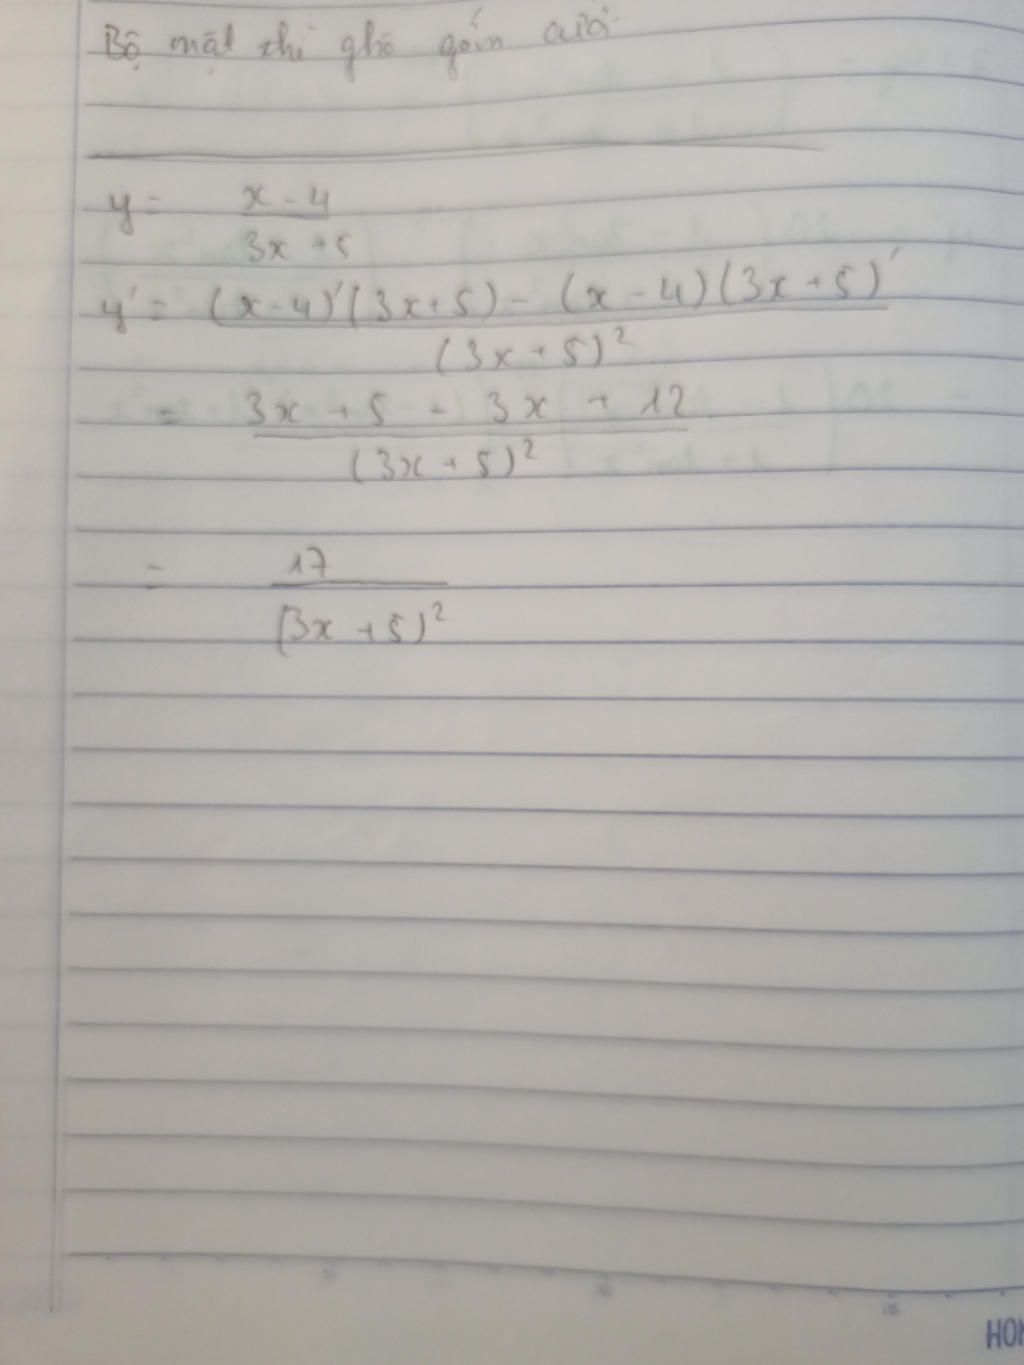 Bộ mặt thì ghê gớm
y = x - 4 / 3x + 5
y' = (x - 4)'(3x + 5) - (x - 4)(3x + 5)' / (3x + 5)²
= 3x + 5 - 3x + 12 / (3x + 5)²
= 17 / (3x + 5)²
15
HON